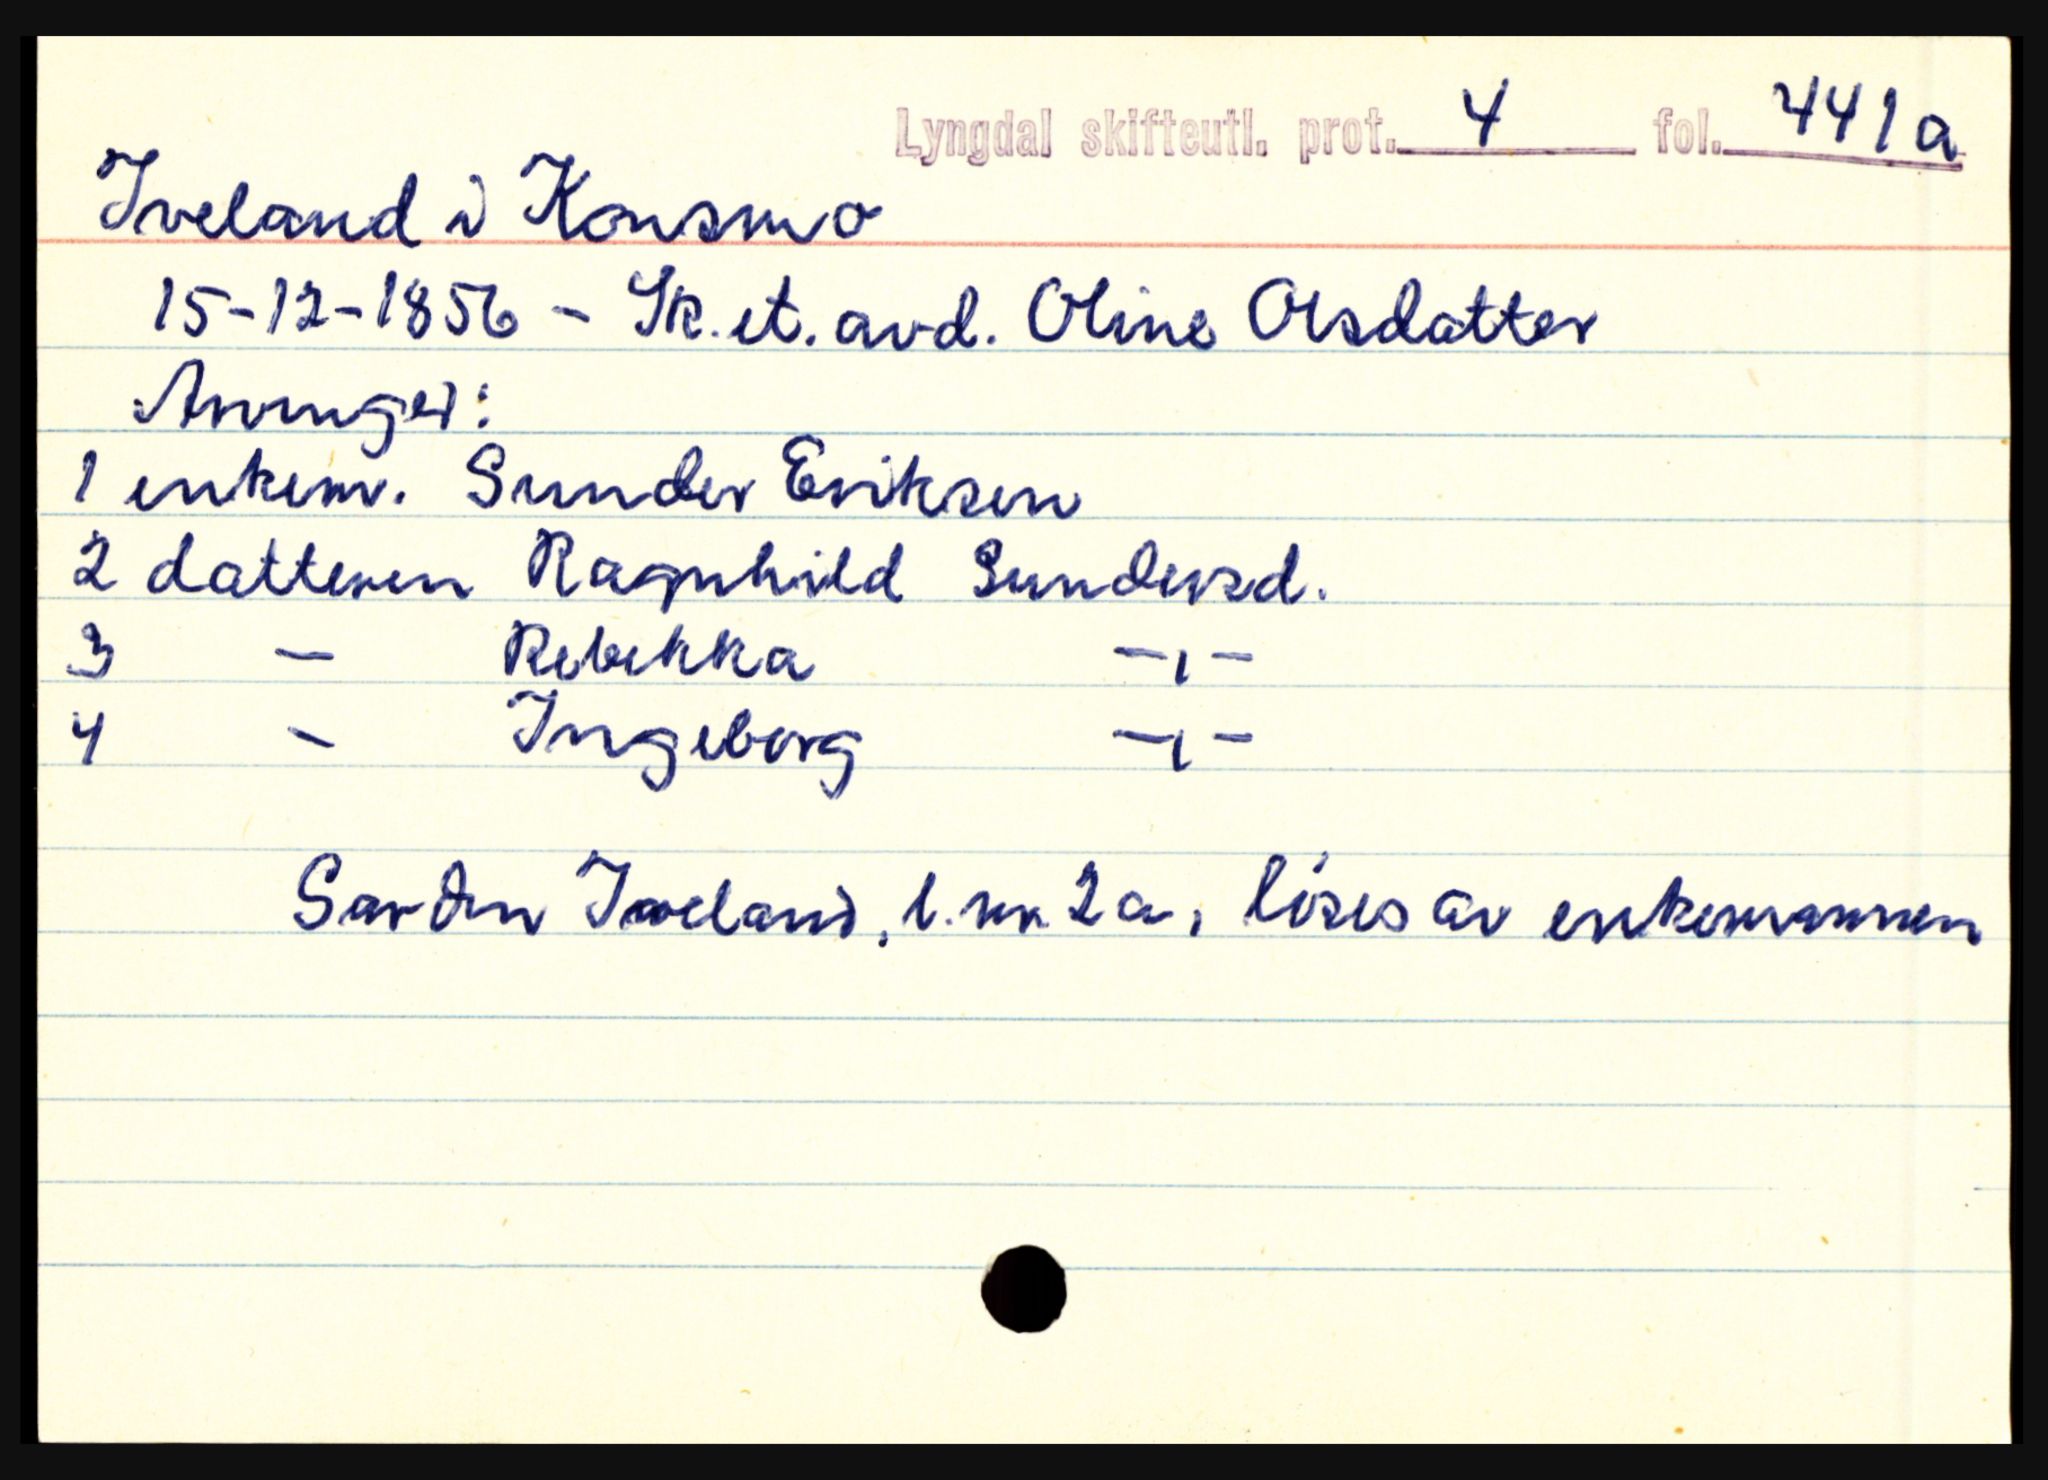 Lyngdal skifteutl. prot. 4 fol. 441a
Iveland i Konsmo
15-12-1856 - Sk.et. avd. Oline Olsdatter
Arvinger:
1 enkem. Sunder Eriksen
2 datteren Ragnhild Sundersd.
3 - Rebekka -,-
4 - Ingeborg -,-
Garden Iveland, l.nr. 2a, löses av enkemannen